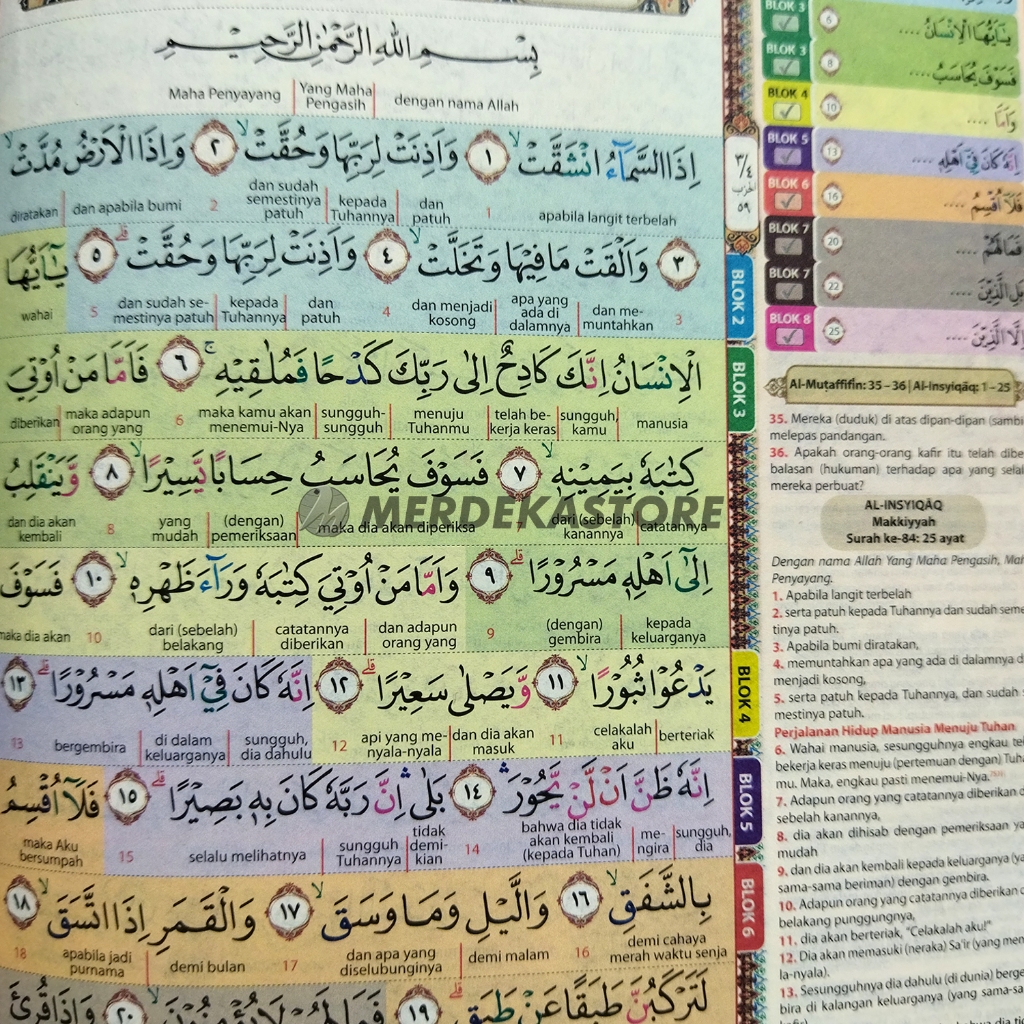 بِسْمِ اللّٰهِ الرَّحْمٰنِ الرَّحِيْمِ
Maha Penyayang | Yang Maha Pengasih | dengan nama Allah
اِذَا السَّمَاۤءُ انْشَقَّتْۙ ١ وَاَذِنَتْ لِرَبِّهَا وَحُقَّتْۙ ٢ وَاِذَا الْاَرْضُ مُدَّتْۙ
diratakan | dan apabila bumi 2 dan sudah semestinya patuh | kepada Tuhannya | dan patuh 1 apabila langit terbelah
٣ وَاَلْقَتْ مَا فِيْهَا وَتَخَلَّتْۙ ٤ وَاَذِنَتْ لِرَبِّهَا وَحُقَّتْۗ ٥ يٰٓاَيُّهَا
wahai 5 dan sudah se-mestinya patuh | kepada Tuhannya | dan patuh 4 dan menjadi kosong | apa yang ada di dalamnya | dan me-muntahkan 3
الْاِنْسَانُ اِنَّكَ كَادِحٌ اِلٰى رَبِّكَ كَدْحًا فَمُلٰقِيْهِۚ ٦ فَاَمَّا مَنْ اُوْتِيَ
diberikan | maka adapun orang yang 6 maka kamu akan menemui-Nya | sungguh-sungguh | menuju Tuhanmu | telah be-kerja keras | sungguh, kamu | manusia
كِتٰبَهٗ بِيَمِيْنِهٖۙ ٧ فَسَوْفَ يُحَاسَبُ حِسَابًا يَّسِيْرًاۙ ٨ وَّيَنْقَلِبُ
dan dia akan kembali 8 yang mudah | (dengan) pemeriksaan | maka dia akan diperiksa 7 dari (sebelah) kanannya | catatannya
MERDEKASTORE
اِلٰٓى اَهْلِهٖ مَسْرُوْرًاۗ ٩ وَاَمَّا مَنْ اُوْتِيَ كِتٰبَهٗ وَرَاۤءَ ظَهْرِهٖۙ ١٠ فَسَوْفَ
maka dia akan 10 dari (sebelah) belakang | catatannya diberikan | dan adapun orang yang 9 (dengan) gembira | kepada keluarganya
يَدْعُوْا ثُبُوْرًاۙ ١١ وَّيَصْلٰى سَعِيْرًاۗ ١٢ اِنَّهٗ كَانَ فِيْٓ اَهْلِهٖ مَسْرُوْرًاۗ ١٣
13 bergembira | di dalam keluarganya | sungguh, dia dahulu 12 api yang me-nyala-nyala | dan dia akan masuk 11 celakalah aku | berteriak
اِنَّهٗ ظَنَّ اَنْ لَّنْ يَّحُوْرَۛ ١٤ بَلٰىۛ اِنَّ رَبَّهٗ كَانَ بِهٖ بَصِيْرًاۗ ١٥ فَلَآ اُقْسِمُ
maka Aku bersumpah 15 selalu melihatnya | sungguh Tuhannya | tidak demi-kian 14 bahwa dia tidak akan kembali (kepada Tuhan) | me-ngira | sungguh, dia
بِالشَّفَقِۙ ١٦ وَالَّيْلِ وَمَا وَسَقَۙ ١٧ وَالْقَمَرِ اِذَا اتَّسَقَۙ ١٨
18 apabila jadi purnama | demi bulan 17 dan apa yang diselubunginya | demi malam 16 demi cahaya merah waktu senja
لَتَرْكَبُنَّ طَبَقًا عَنْ طَبَقٍۗ ١٩ فَمَا لَهُمْ لَا يُؤْمِنُوْنَۙ ٢٠ وَاِذَا قُرِئَ
٣/٤
الحزب
٥٩
BLOK 2
BLOK 3
BLOK 4
BLOK 5
BLOK 6
BLOK 3 6 يٰٓاَيُّهَا الْاِنْسَانُ ....
BLOK 3 8 فَسَوْفَ يُحَاسَبُ ....
BLOK 4 10 وَاَمَّا ....
BLOK 5 13 اِنَّهٗ كَانَ فِيْٓ اَهْلِهٖ ....
BLOK 6 16 فَلَآ اُقْسِمُ ....
BLOK 7 20 فَمَا لَهُمْ ....
BLOK 7 22 بَلِ الَّذِيْنَ ....
BLOK 8 25 اِلَّا الَّذِيْنَ ....
Al-Mutaffifin: 35 – 36 | Al-Insyiqāq: 1 – 25
35. Mereka (duduk) di atas dipan-dipan (sambil
melepas pandangan.
36. Apakah orang-orang kafir itu telah diberi
balasan (hukuman) terhadap apa yang selalu
mereka perbuat?
AL-INSYIQĀQ
Makkiyyah
Surah ke-84: 25 ayat
Dengan nama Allah Yang Maha Pengasih, Maha
Penyayang.
1. Apabila langit terbelah
2. serta patuh kepada Tuhannya dan sudah seme
tinya patuh.
3. Apabila bumi diratakan,
4. memuntahkan apa yang ada di dalamnya dan
menjadi kosong,
5. serta patuh kepada Tuhannya, dan sudah
mestinya patuh.
Perjalanan Hidup Manusia Menuju Tuhan
6. Wahai manusia, sesungguhnya engkau telah
bekerja keras menuju (pertemuan dengan) Tuhan-
mu. Maka, engkau pasti menemui-Nya.
7. Adapun orang yang catatannya diberikan dari
sebelah kanannya,
8. dia akan dihisab dengan pemeriksaan yang
mudah
9. dan dia akan kembali kepada keluarganya (yang
sama-sama beriman) dengan gembira.
10. Adapun orang yang catatannya diberikan dari
belakang punggungnya,
11. dia akan berteriak, "Celakalah aku!"
12. Dia akan memasuki (neraka) Sa'ir (yang menya-
la-nyala).
13. Sesungguhnya dia dahulu (di dunia) bergem-
bira di kalangan keluarganya (yang sama-sama